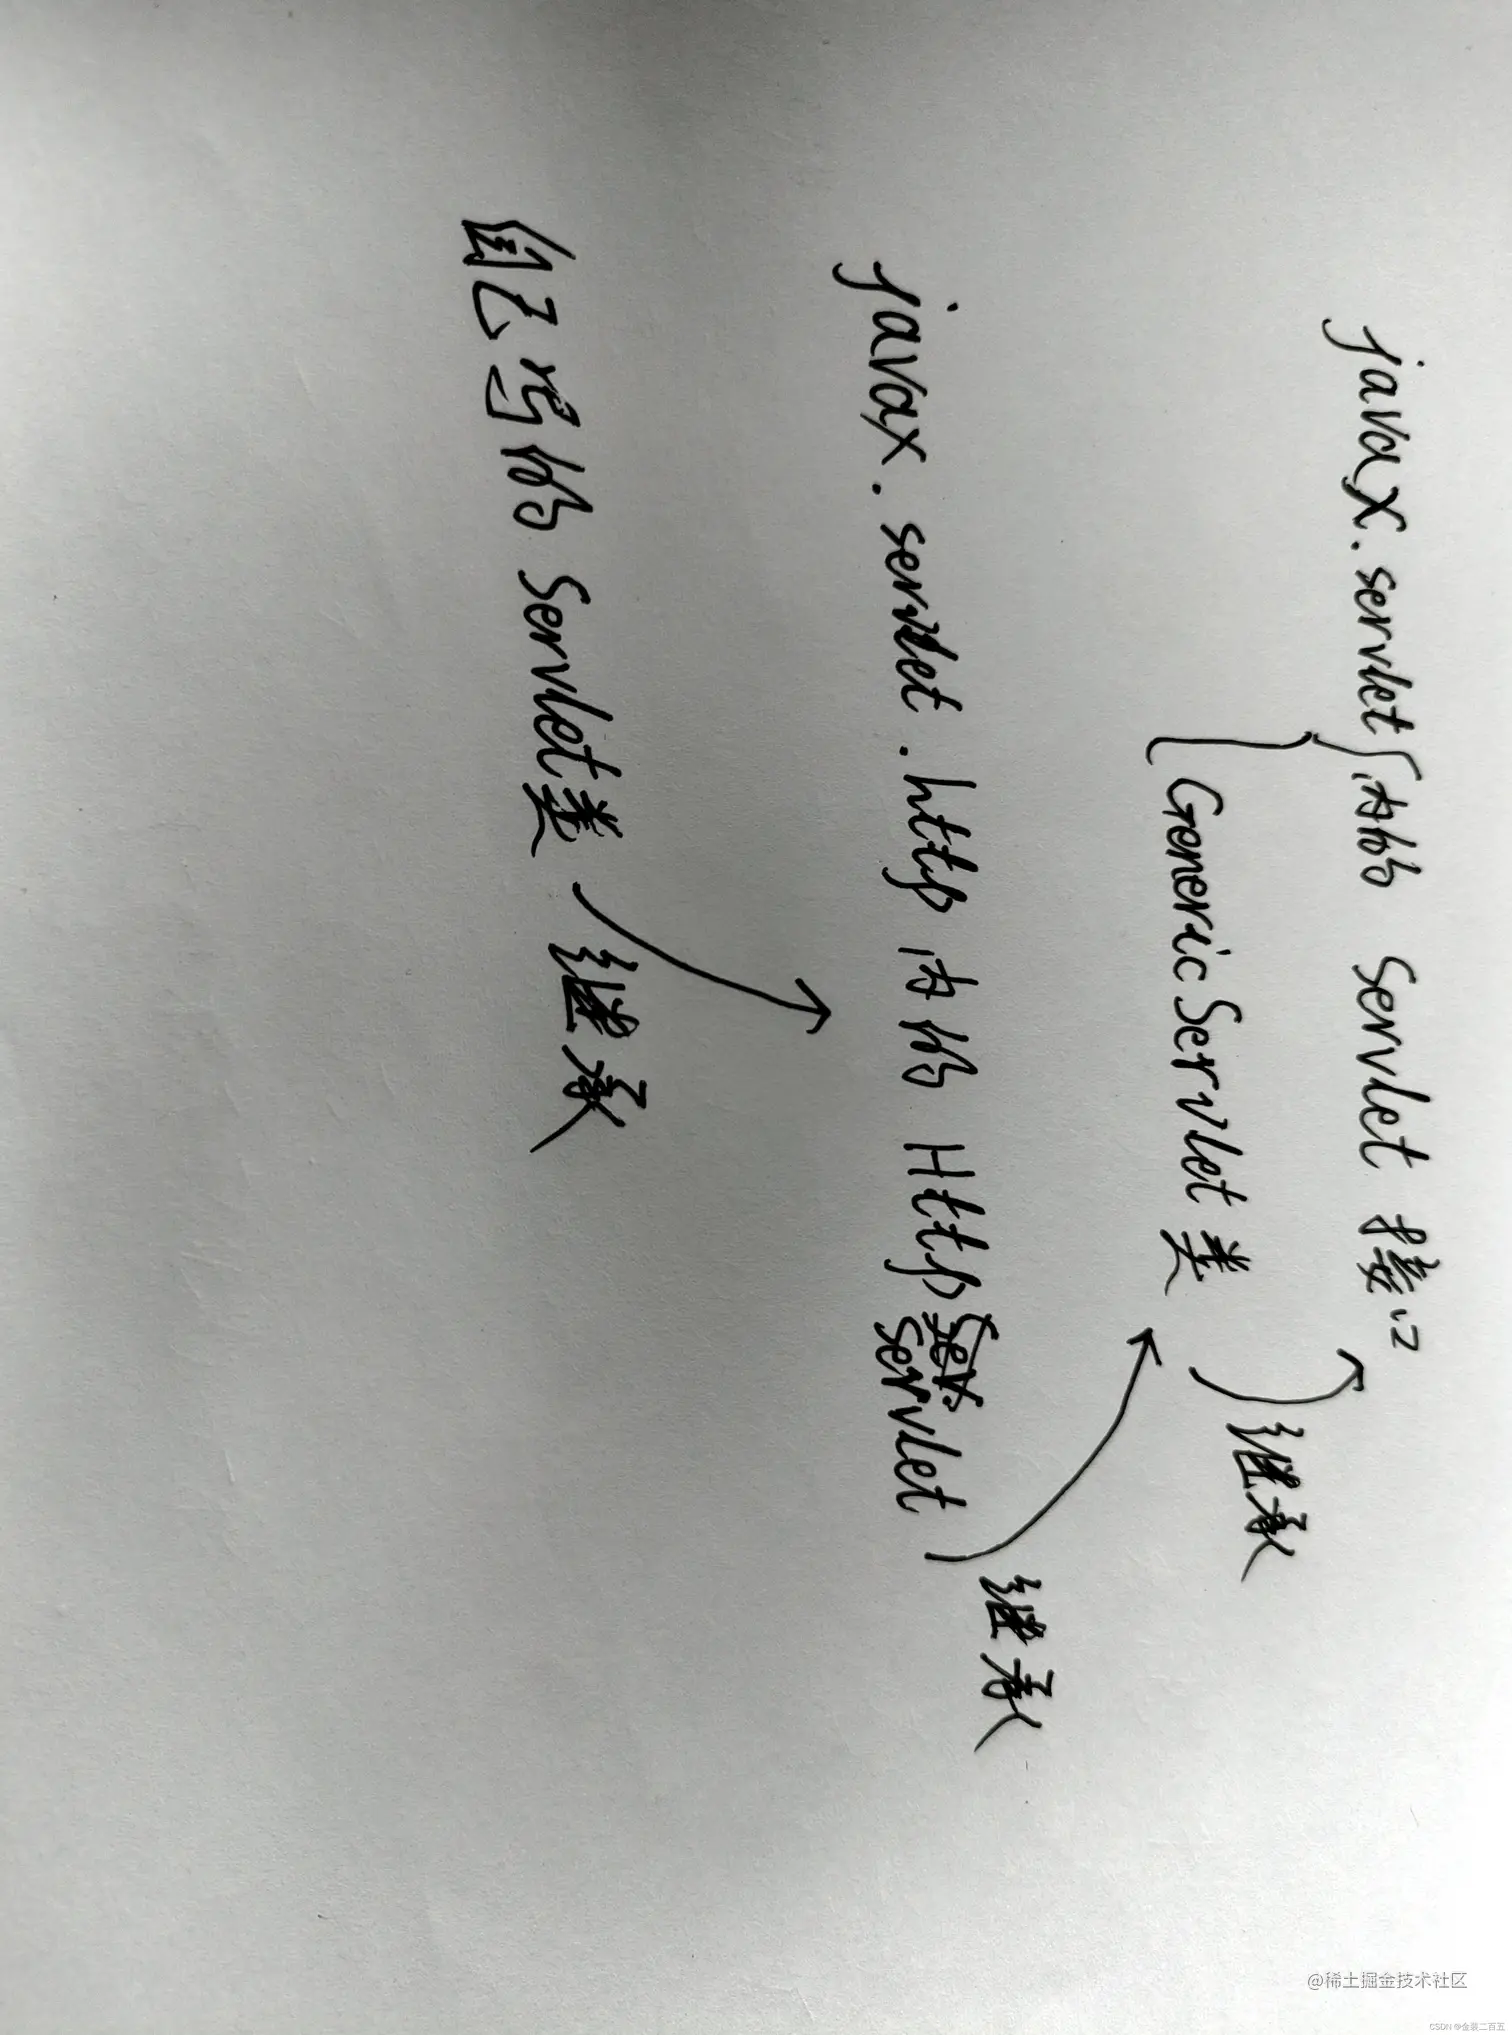 javax.servlet { 内的 Servlet 接口
GenericServlet 类
继承
javax.servlet.http 内的 HttpServlet
继承
自己写的 Servlet类
继承
@稀土掘金技术社区
CSDN @金裝二百五